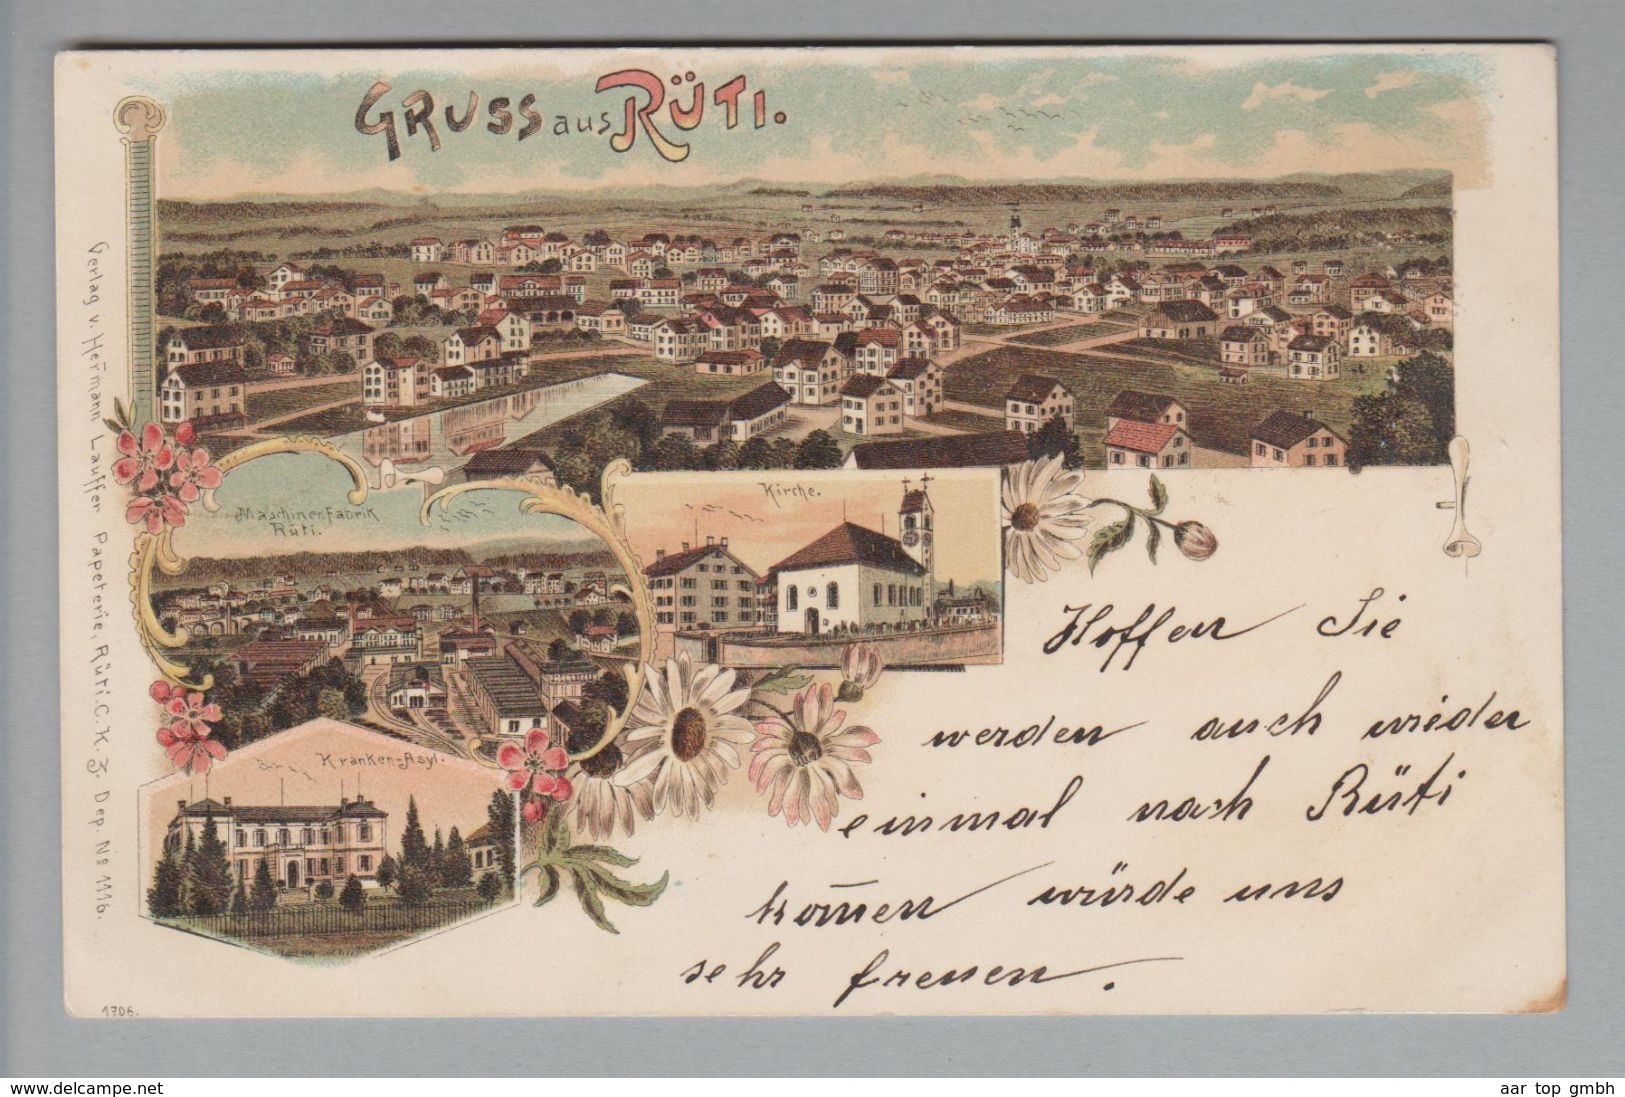 GRUSS aus RÜTI.
Verlag v. Hermann Lauffer Papeterie, Rüti. C. K. Z. Dep. No 1116.
Maschinenfabrik
Rüti.
Kirche.
Kranken-Asyl.
Hoffen Sie
werden auch wieder
einmal nach Rüti
kom̄en würde uns
sehr freuen.
1706.
www.delcampe.net
aar top gmbh